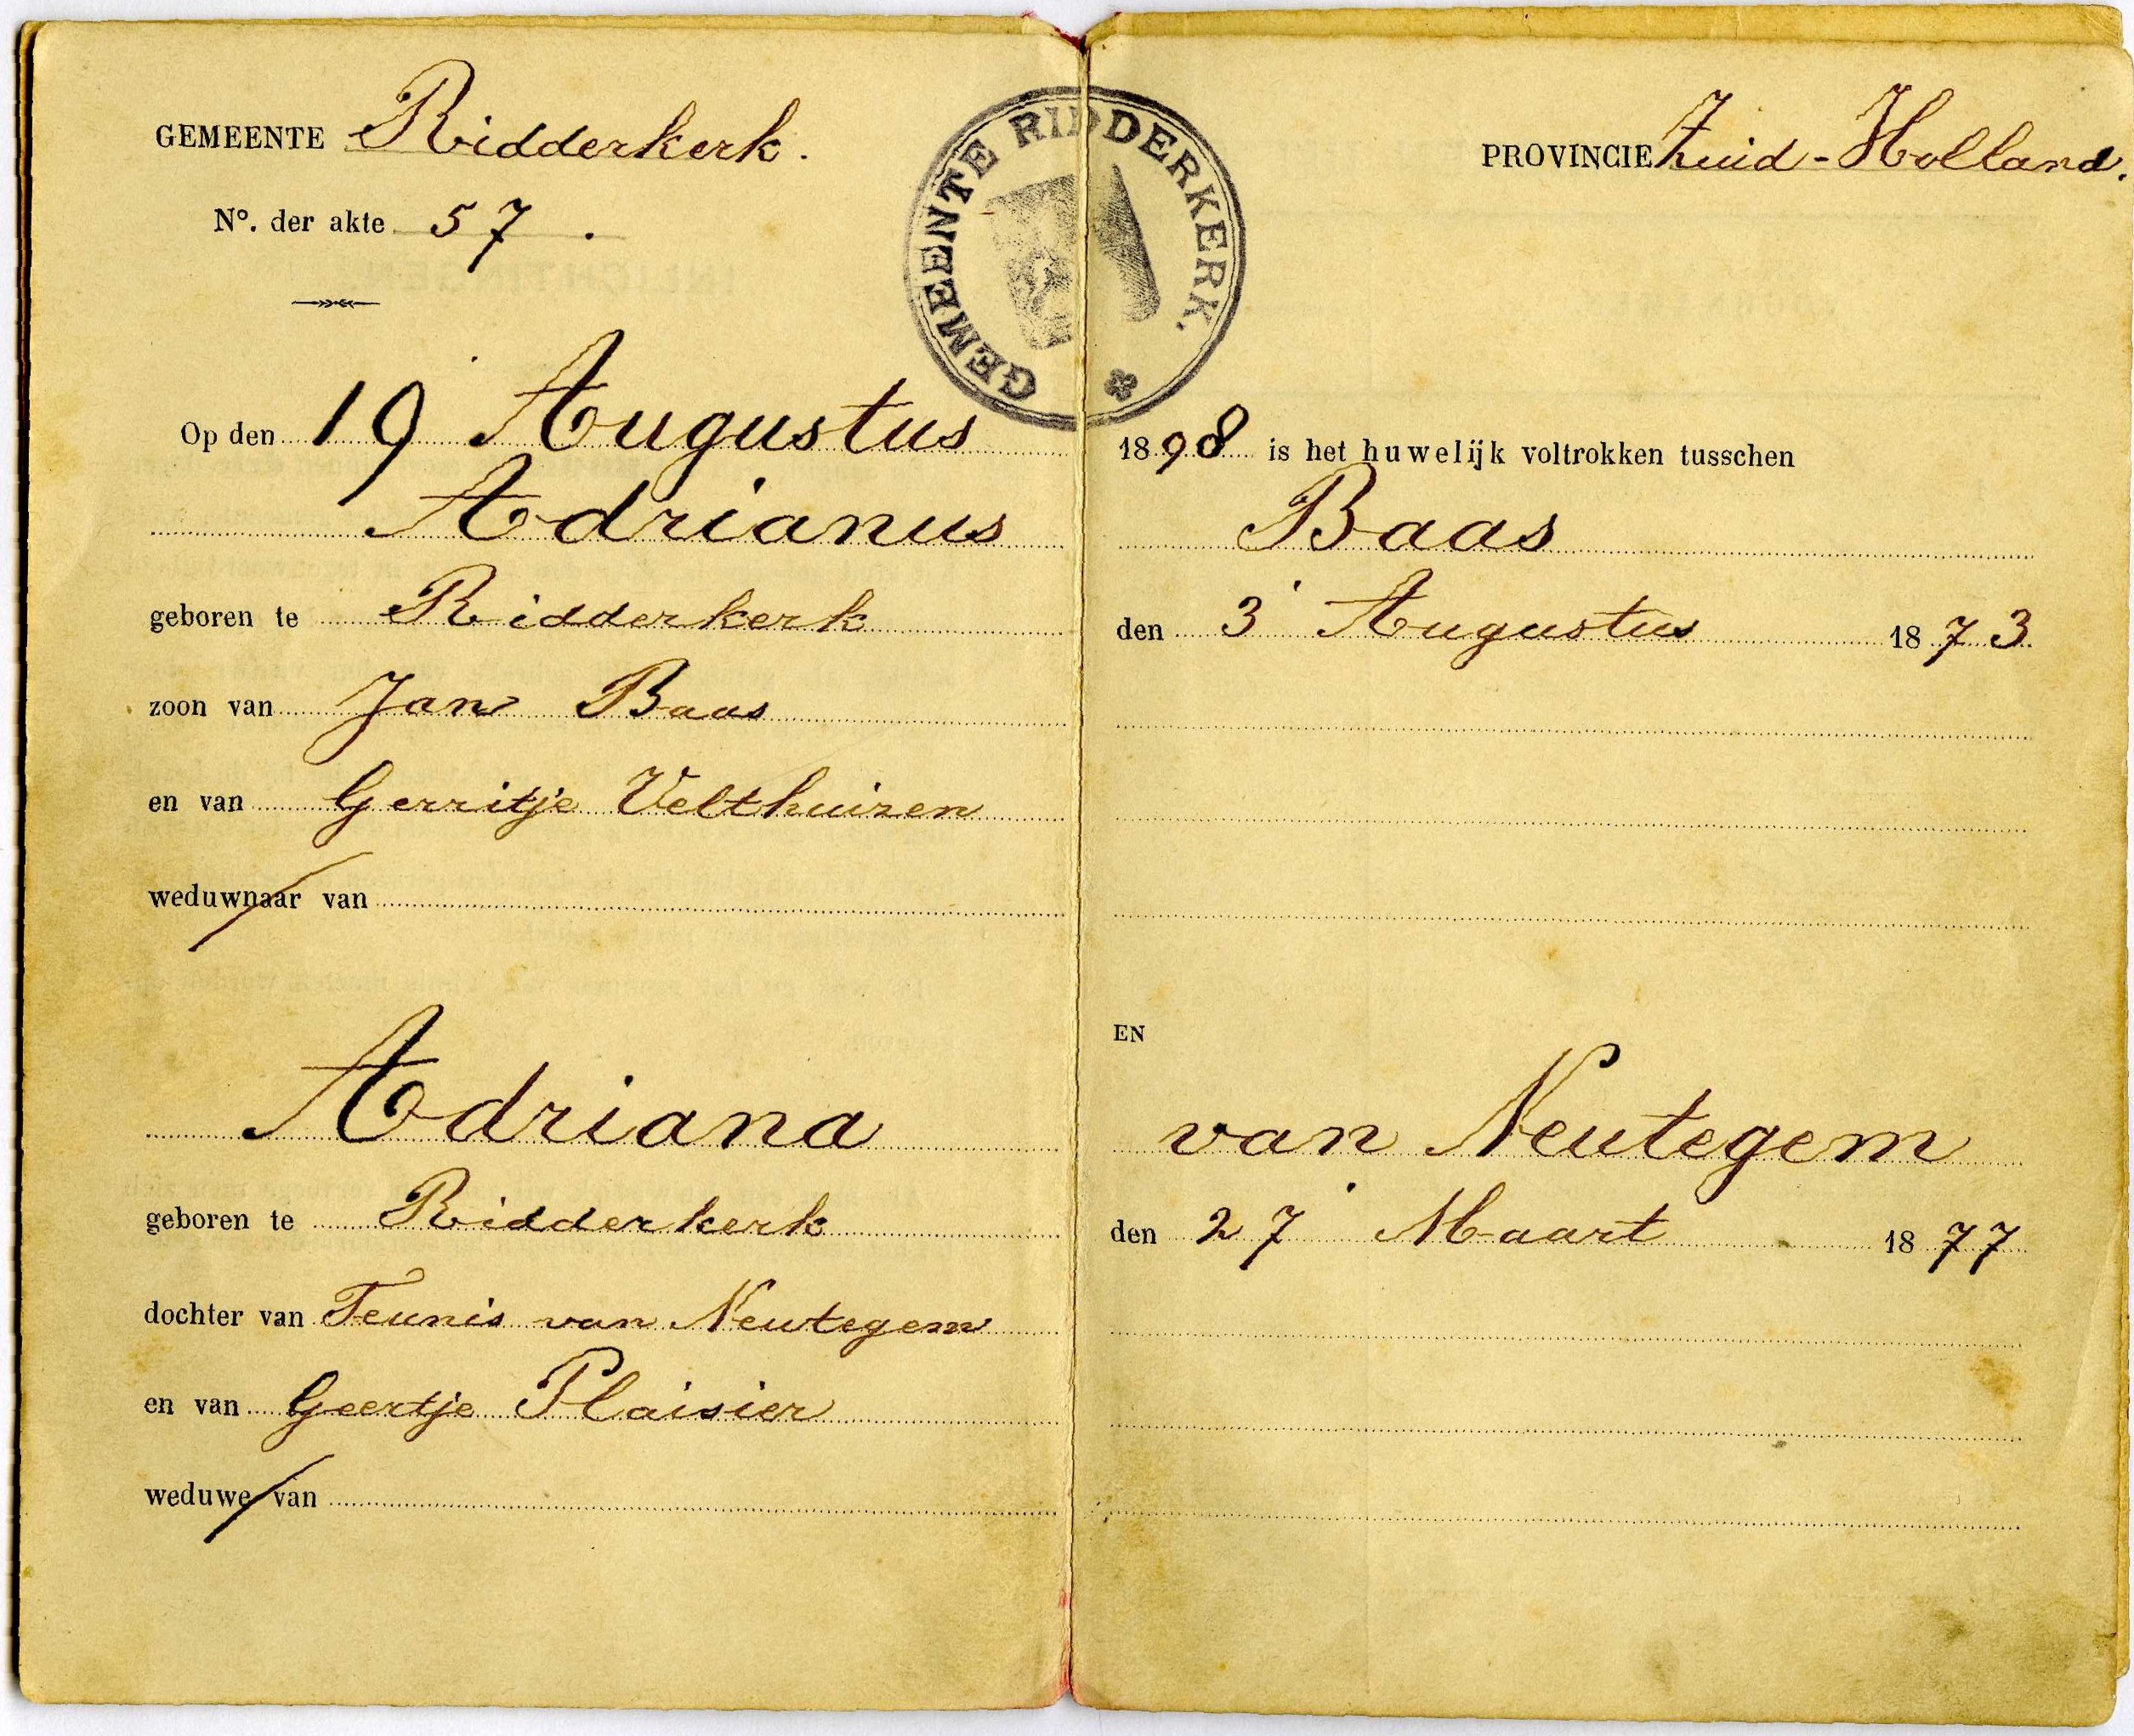 GEMEENTE Ridderkerk.
PROVINCIE Zuid-Holland.
No. der akte 57.
GEMEENTE RIDDERKERK.
Op den 19 Augustus 1898 is het huwelijk voltrokken tusschen
Adrianus Baas
geboren te Ridderkerk den 3 Augustus 1873.
zoon van Jan Baas
en van Gerritje Velthuizen
weduwnaar van
EN
Adriana van Neutegem
geboren te Ridderkerk den 27 Maart 1877
dochter van Teunis van Neutegem
en van Geertje Plaisier
weduwe van